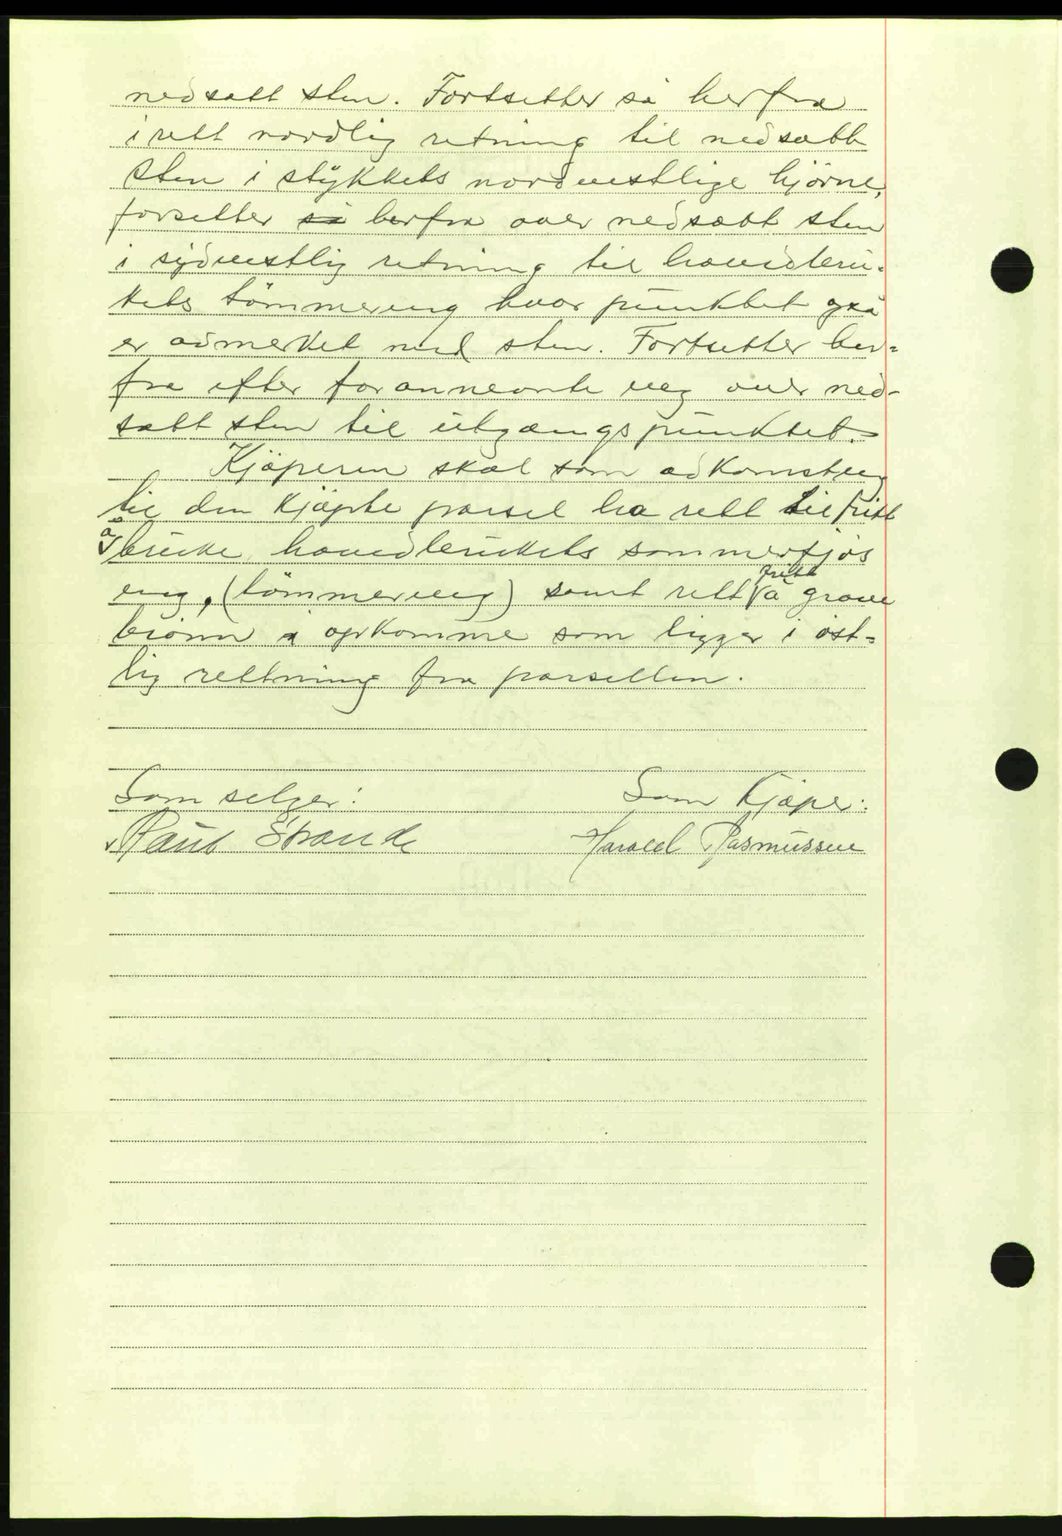 nedsatt sten. Fortsetter så herfra
i rett nordlig retning til nedsatt
sten i stykkets nordvestlige hjörne,
forsetter så herfra over nedsatt sten
i sydvestlig retning til hovedbru-
kets tömmerveg hvor punktet også
er avmerket med sten. Fortsetter her=
fra efter forannevnte veg over ned-
satt sten til utgangspunktet.
Kjöperen skal som adkomstveg
til den kjöpte parsel ha rett til fritt
å bruke hovedbrukets sommerfjös
veg, (tömmerveg) samt rett fritt å grave
brönn i opkomme som ligger i öst=
lig rettning fra parsellen.
Som selger: Som Kjøper:
Paul Strande Harald Rasmussen